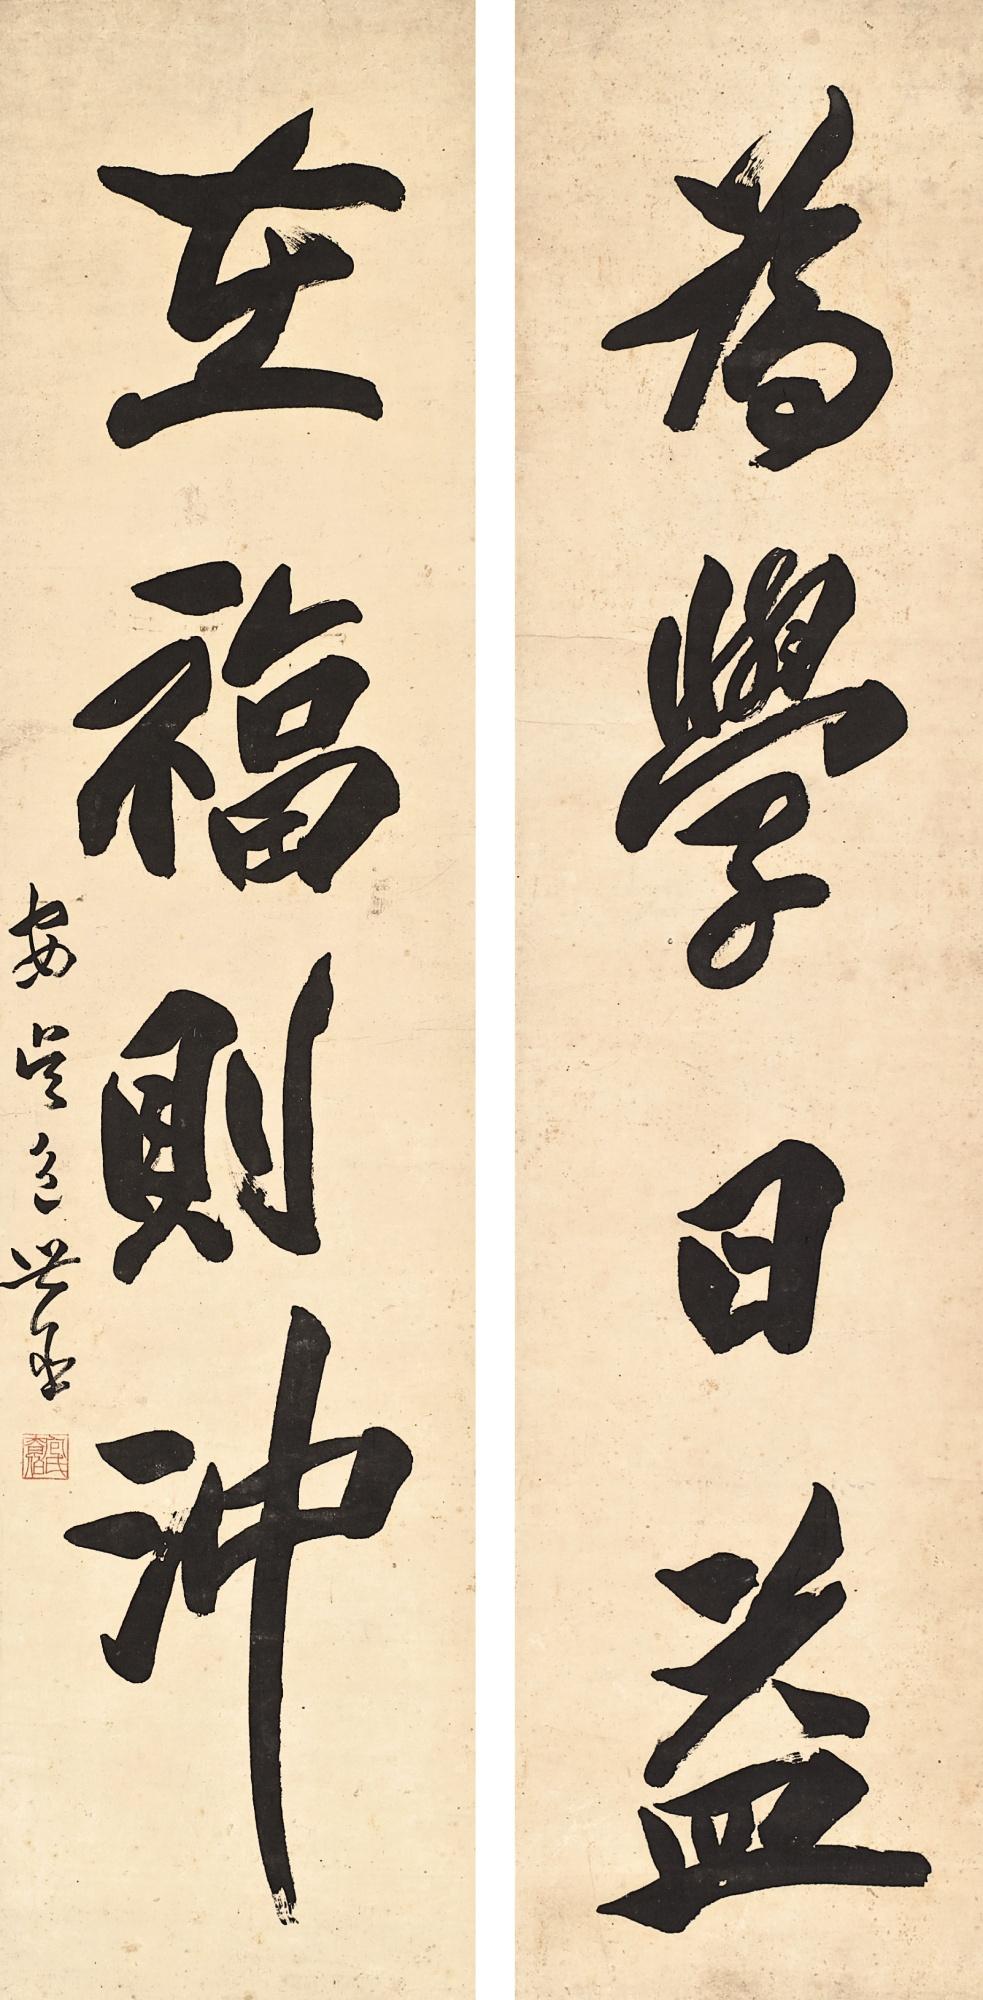 為學日益
在福則沖
安吳包世臣